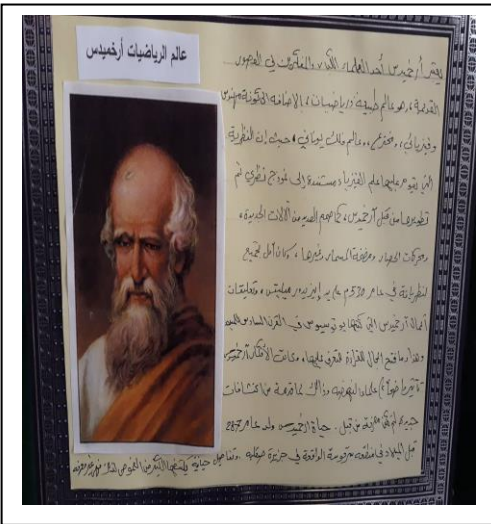 عالم الرياضيات أرخميدس
يعتبر أرخميدس أحد العلماء الكبار والمفكرين في العصور
القديمة، هو عالم طبيعة ورياضيات، بالإضافة الى كونه مهندس
وفيزيائي، ومخترع، وعالم فلك يوناني، حيث إن النظرية
التي يقوم عليها علم الفيزياء مستندة إلى نموذج نظري تم
تطويرها من قبل أرخميدس، كما صمم العديد من الآلات الجديدة،
ومحركات الحصار ومضخة المسمار وغيرها، وكان أول تجميع
لنظرياته في عام 530م على يد إيزيدور ميليتس، وتعليقات
أعمال أرخميدس التي كتبها يوتوسيوس في القرن السادس
وهذا ما فتح المجال للقراءة للتعرف عليها، وكانت الأفكار أرخميدس
تأثيرا ضوءاً علماء النهضة وذلك لما قدمه من اكتشافات
جديدة لم تكن معروفة من قبل. حياة أرخميدس ولد عام 287
قبل الميلاد في منطقة سرقوسة الواقعة في جزيرة صقلية، وتفاصيل حياته